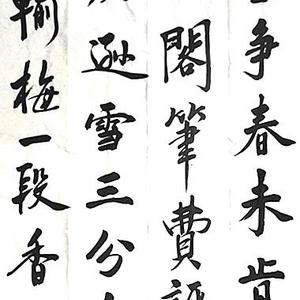 争春未肯
閣筆費評
遜雪三分
輸梅一段香